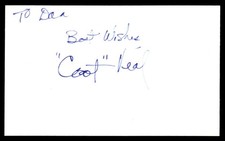 To Dan
Best Wishes
"Coot" Veal